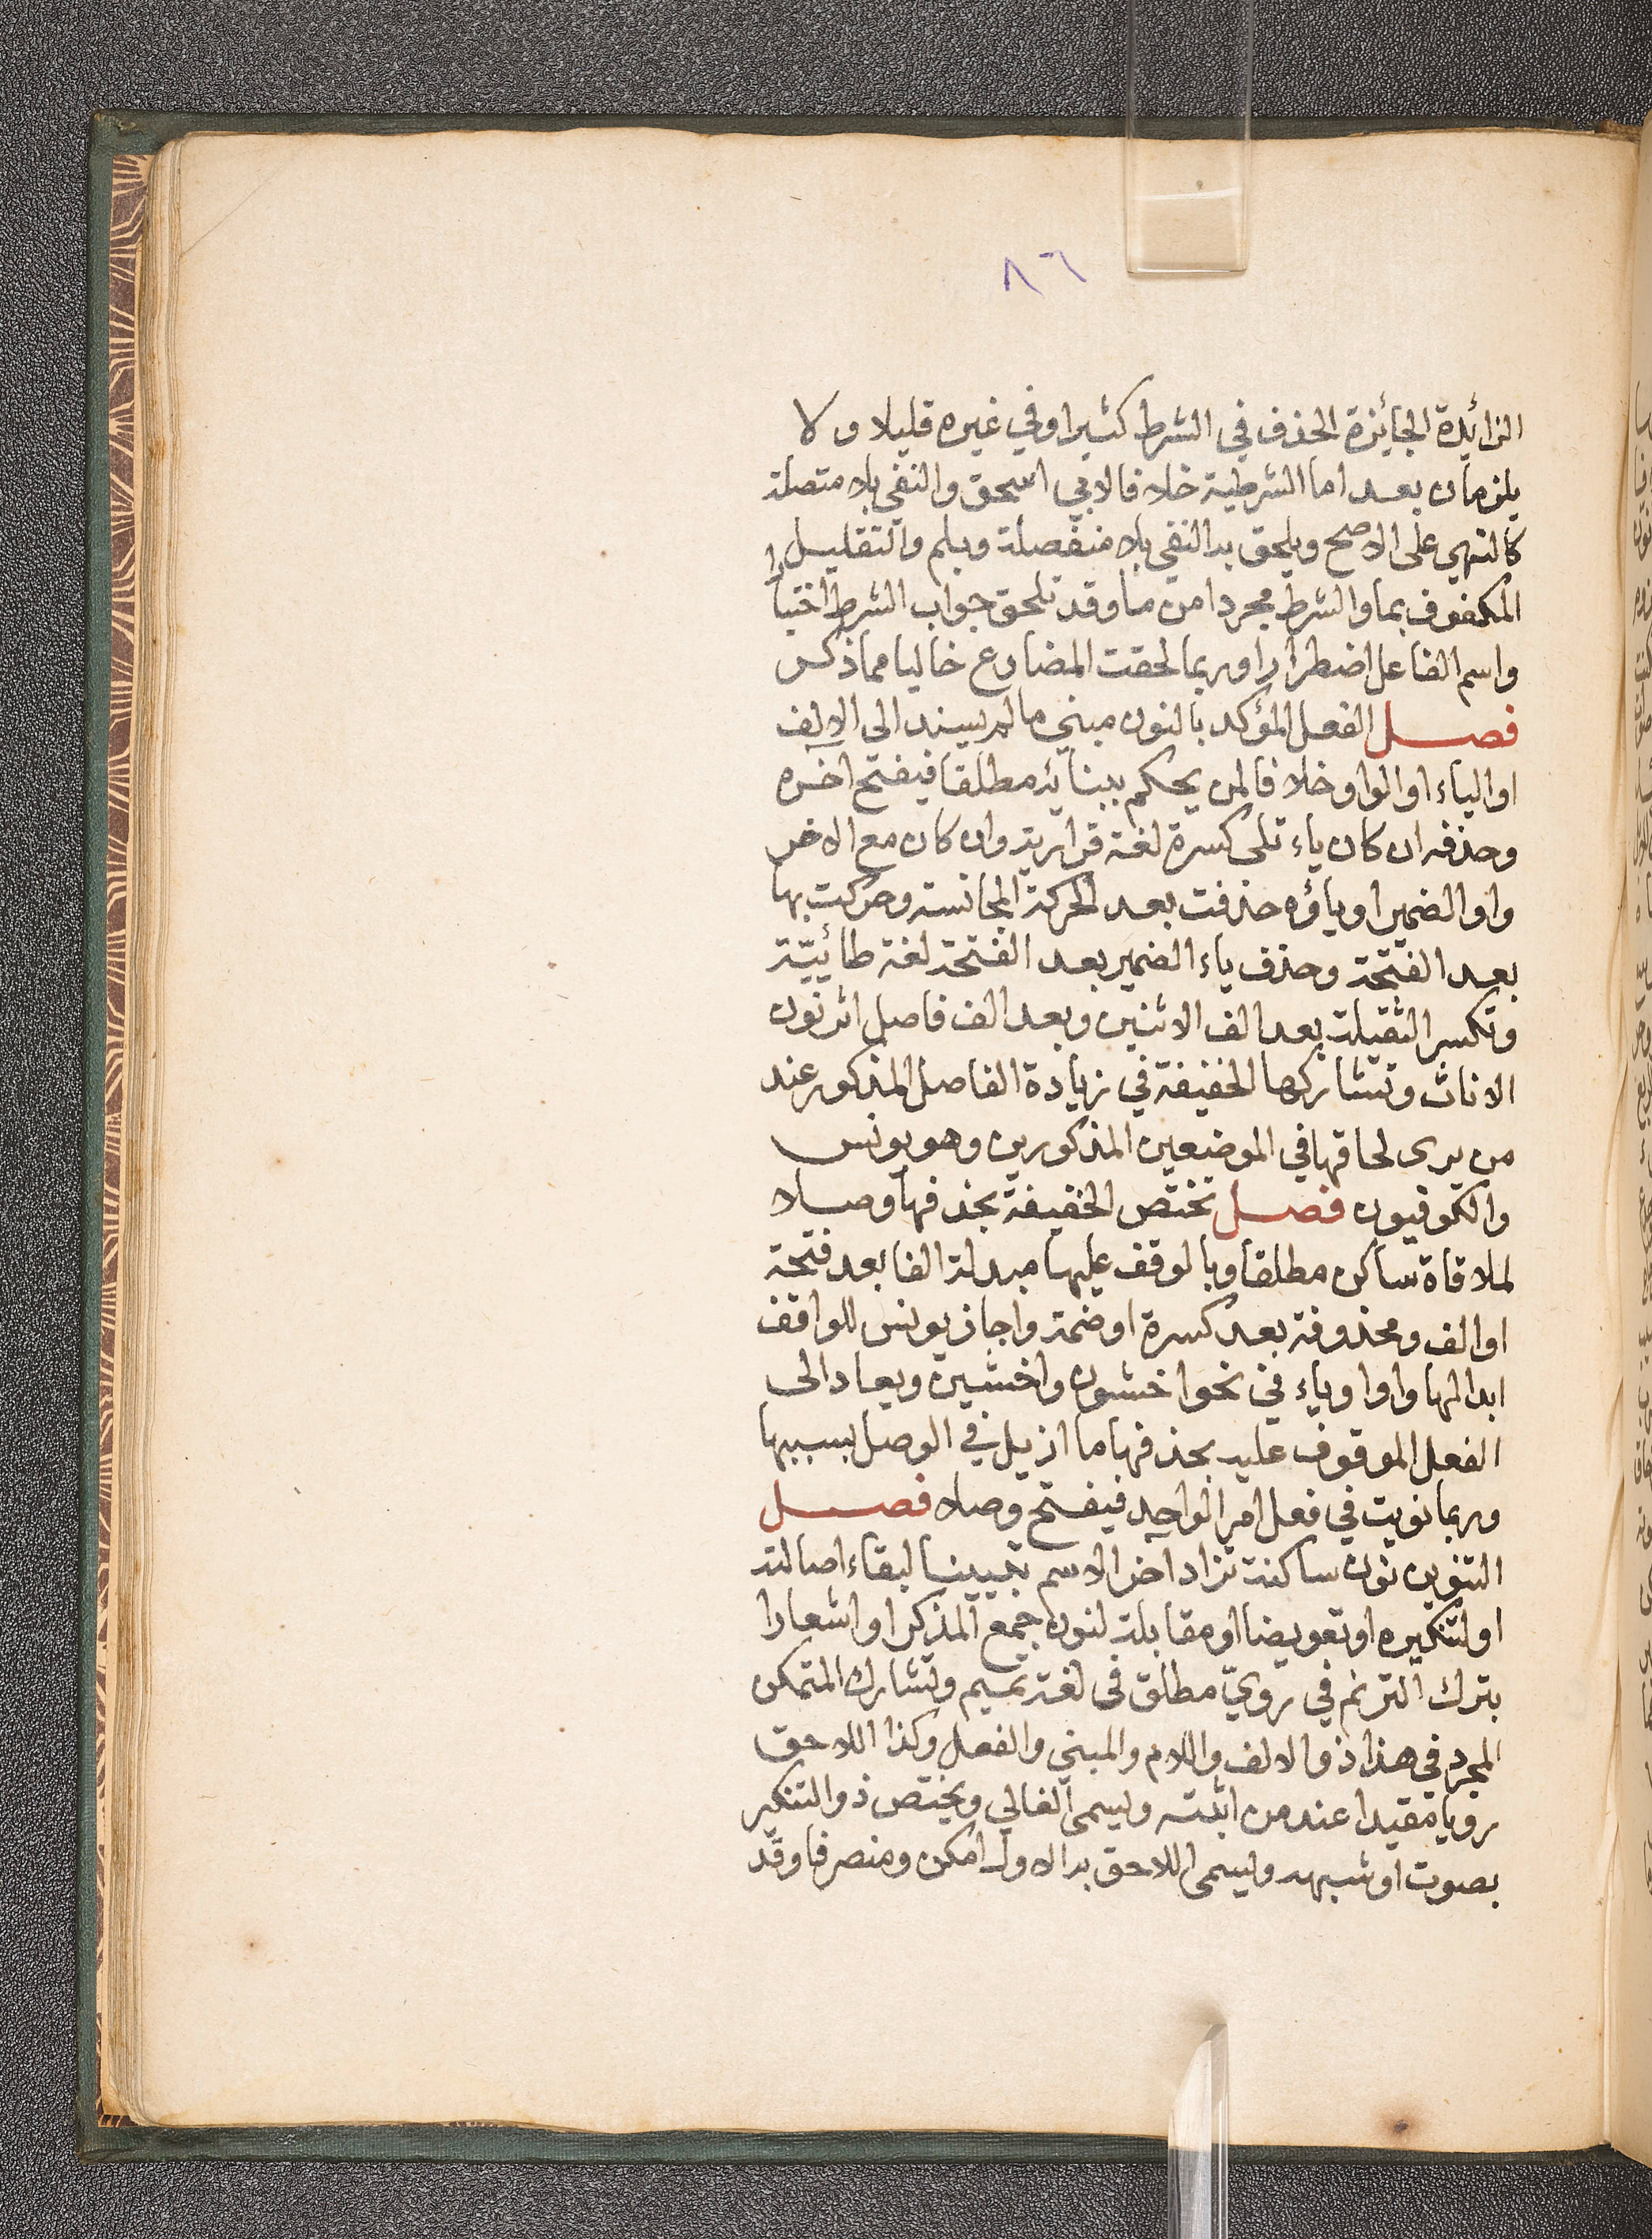 ٨٦
الزائدة الجائزة الحذف في الشرط كثيرا وفي غيره قليلا ولا
يلزمان بعد اما الشرطية خلافا لابي اسحق والنفي بلا متصلة
كالنهي على الاصح ويلحق به النفي بلا منفصلة وبلم والتقليل
المكفوف بما والشرط مجردا من ما وقد تلحق جواب الشرط اختيارا
واسم الفاعل اضطرارا وربما لحقت المضارع خاليا مما ذكر
فصل الفعل المؤكد بالنون مبني ما لم يسند الى الالف
او الياء او الواو خلافا لمن يحكم ببنائه مطلقا فيفتح اخره
وحذفه ان كان ياء تلي كسرة لغة فزارية وان كان مع الاخر
واو الضمير او ياؤه حذفت بعد الحركة المجانسة وحركت بها
بعد الفتحة وحذف ياء الضمير بعد الفتحة لغة طائيّة
وتكسر الثقيلة بعد الف الاثنين وبعد الف فاصل اثر نون
الاناث وتشاركها الخفيفة في زيادة الفاصل المذكور عند
من يرى لحاقها في الموضعين المذكورين وهو يونس
والكوفيون فصل تختص الخفيفة بحذفها وصلا
لملاقاة ساكن مطلقا وبالوقف عليها مبدلة الفا بعد فتحة
او الف ومحذوفة بعد كسرة او ضمة واجاز يونس للواقف
ابدالها واوا وياء في نحو اخشون واخشين ويعاد الى
الفعل الموقوف عليه بحذفها ما ازيل في الوصل بسببها
وربما نويت في فعل امر الواحد فيفتح وصلا فصل
التنوين نون ساكنة تزاد اخر الاسم تبيينا لبقاء اصالته
او لتنكيره او تعويضا او مقابلة لنون جمع المذكر او اشعارا
بترك الترنم في رويّ مطلق في لغة تميم وتشارك المتمكن
المجرد في هذا ذو الالف واللام والمبني والفعل وكذا اللاحق
رويا مقيدا عند من اثبته ويسمى الغالي ويختص ذو التنكير
بصوت او شبهه ويسمى اللاحق به الاول امكن ومنصرفا وقد